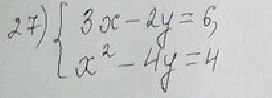 27) { 3x - 2y = 6,
x² - 4y = 4